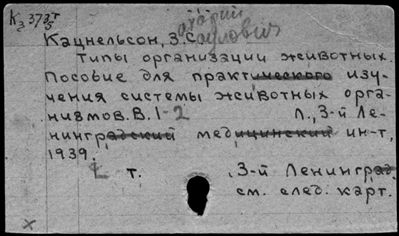 Кацнельсон, З.С.
ахарий
аулович
Типы организации животных.
Пособие для практического изу-
чения системы животных орга-
низмов. В. 1-2 Л., 3-й Ле-
нинградский медицинский ин-т,
1939.
т. , 3-й Ленинград.
см. след. карт.